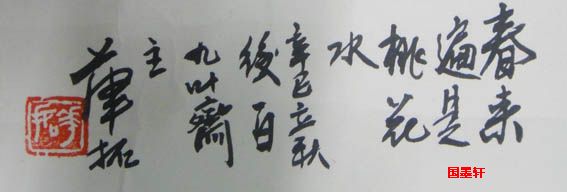 春来
遍是
桃花
水
辛巳立秋
后百
九叶斋
主
萍拓
国墨轩